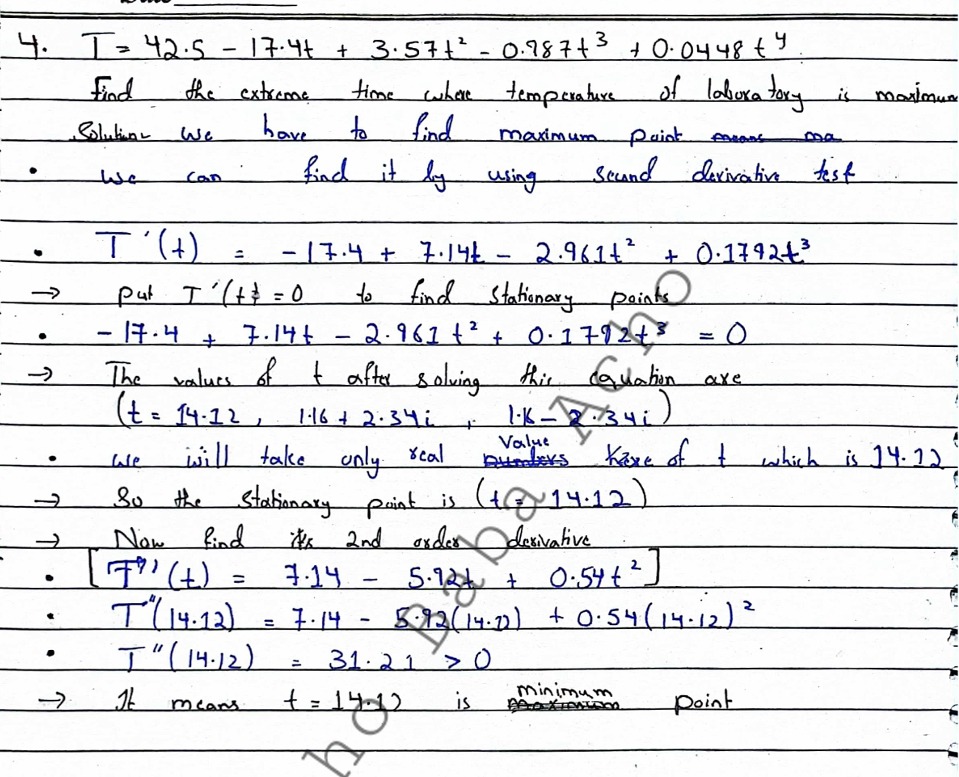 4. T = 42.5 - 17.4t + 3.57t² - 0.987t³ + 0.0448t⁴
Find the extreme time where temperature of laboratory is maximum
Solution we have to find maximum point
• we can find it by using second derivative test
• T'(t) = -17.4 + 7.14t - 2.961t² + 0.1792t³
→ put T'(t) = 0 to find stationary points
• -17.4 + 7.14t - 2.961t² + 0.1792t³ = 0
→ The values of t after solving this equation are
(t = 14.12, 1.16 + 2.34i, 1.16 - 2.34i)
• we will take only real Value of t which is 14.12
→ So the stationary point is (t = 14.12)
→ Now find its 2nd order derivative
• [T''(t) = 7.14 - 5.92t + 0.54t²]
• T"(14.12) = 7.14 - 5.92(14.12) + 0.54(14.12)²
• T"(14.12) = 31.21 > 0
→ It means t = 14.12 is minimum point
Baba Acho